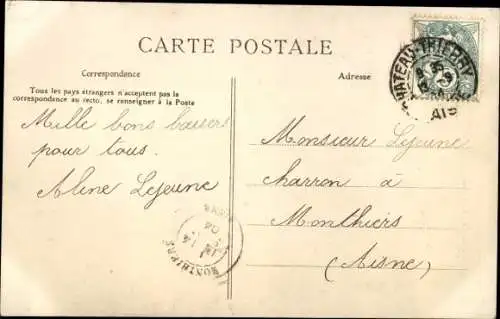 CARTE POSTALE
Correspondance
Adresse
Tous les pays étrangers n'acceptent pas la
correspondance au recto, se renseigner à la Poste
Mille bons baisers
pour tous.
Aline Lejeune
Monsieur Lejeune
charron à
Monthiers
(Aisne)
CHATEAU-THIERRY
MONTHIERS